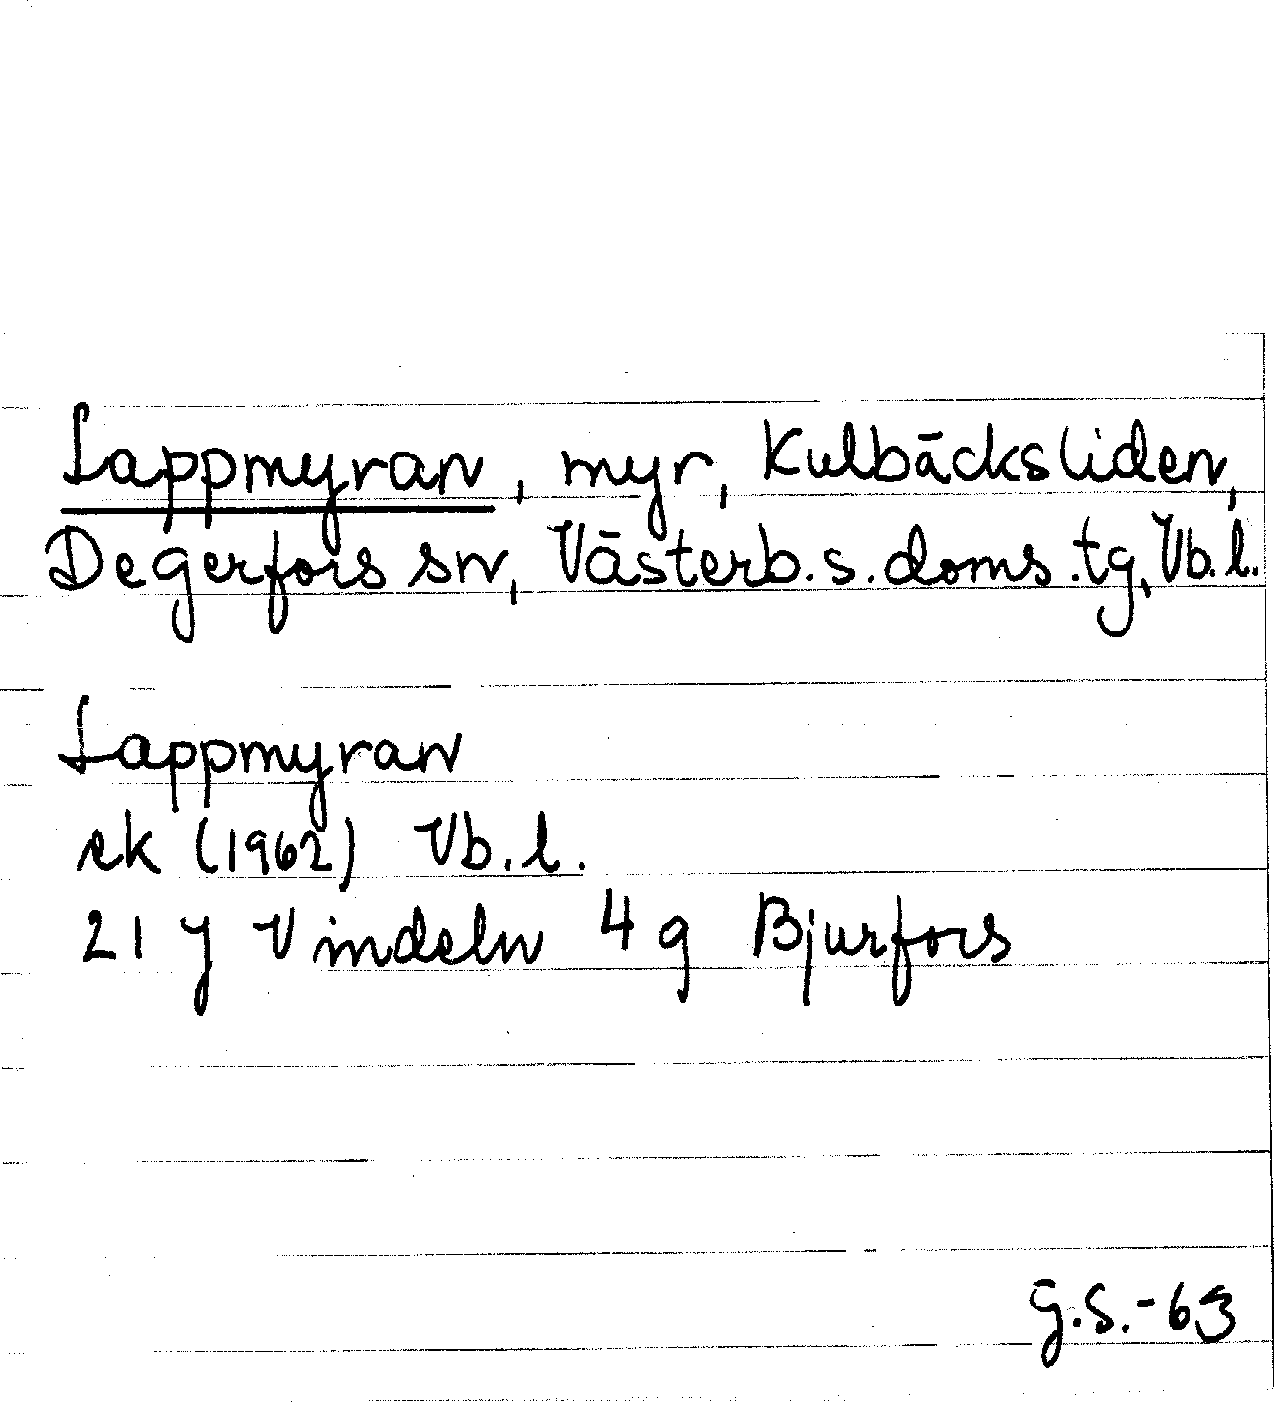 Lappmyran, myr, Kulbäcksliden,
Degerfors sn, Västerb. s. doms. tg, Vb. l.
Lappmyran
ek (1962) Vb. l.
21 J Vindeln 4 g Bjurfors
G.S.-63